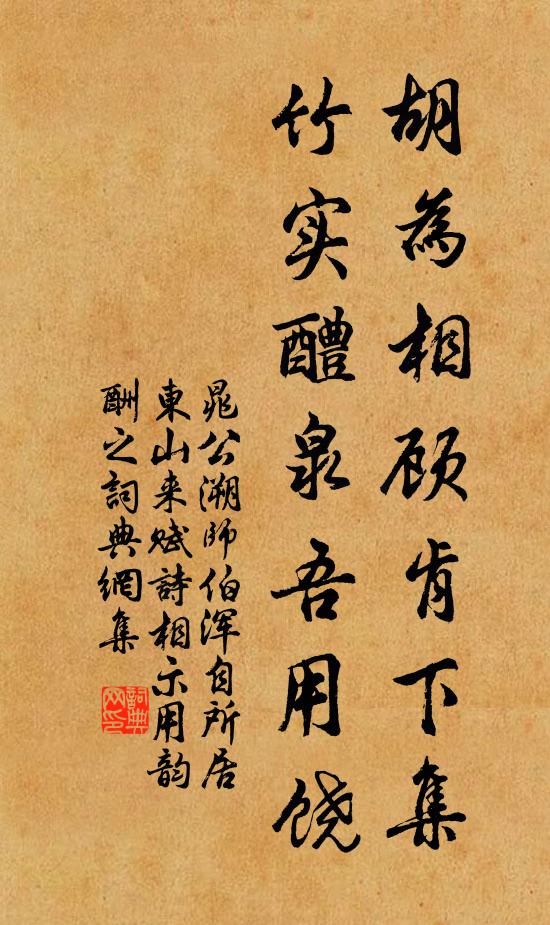 胡為相顾肯下集
竹实醴泉吾用饶
晁公溯师伯浑自所居
東山来赋詩相示用韵
酬之詞典網集
詞典网印